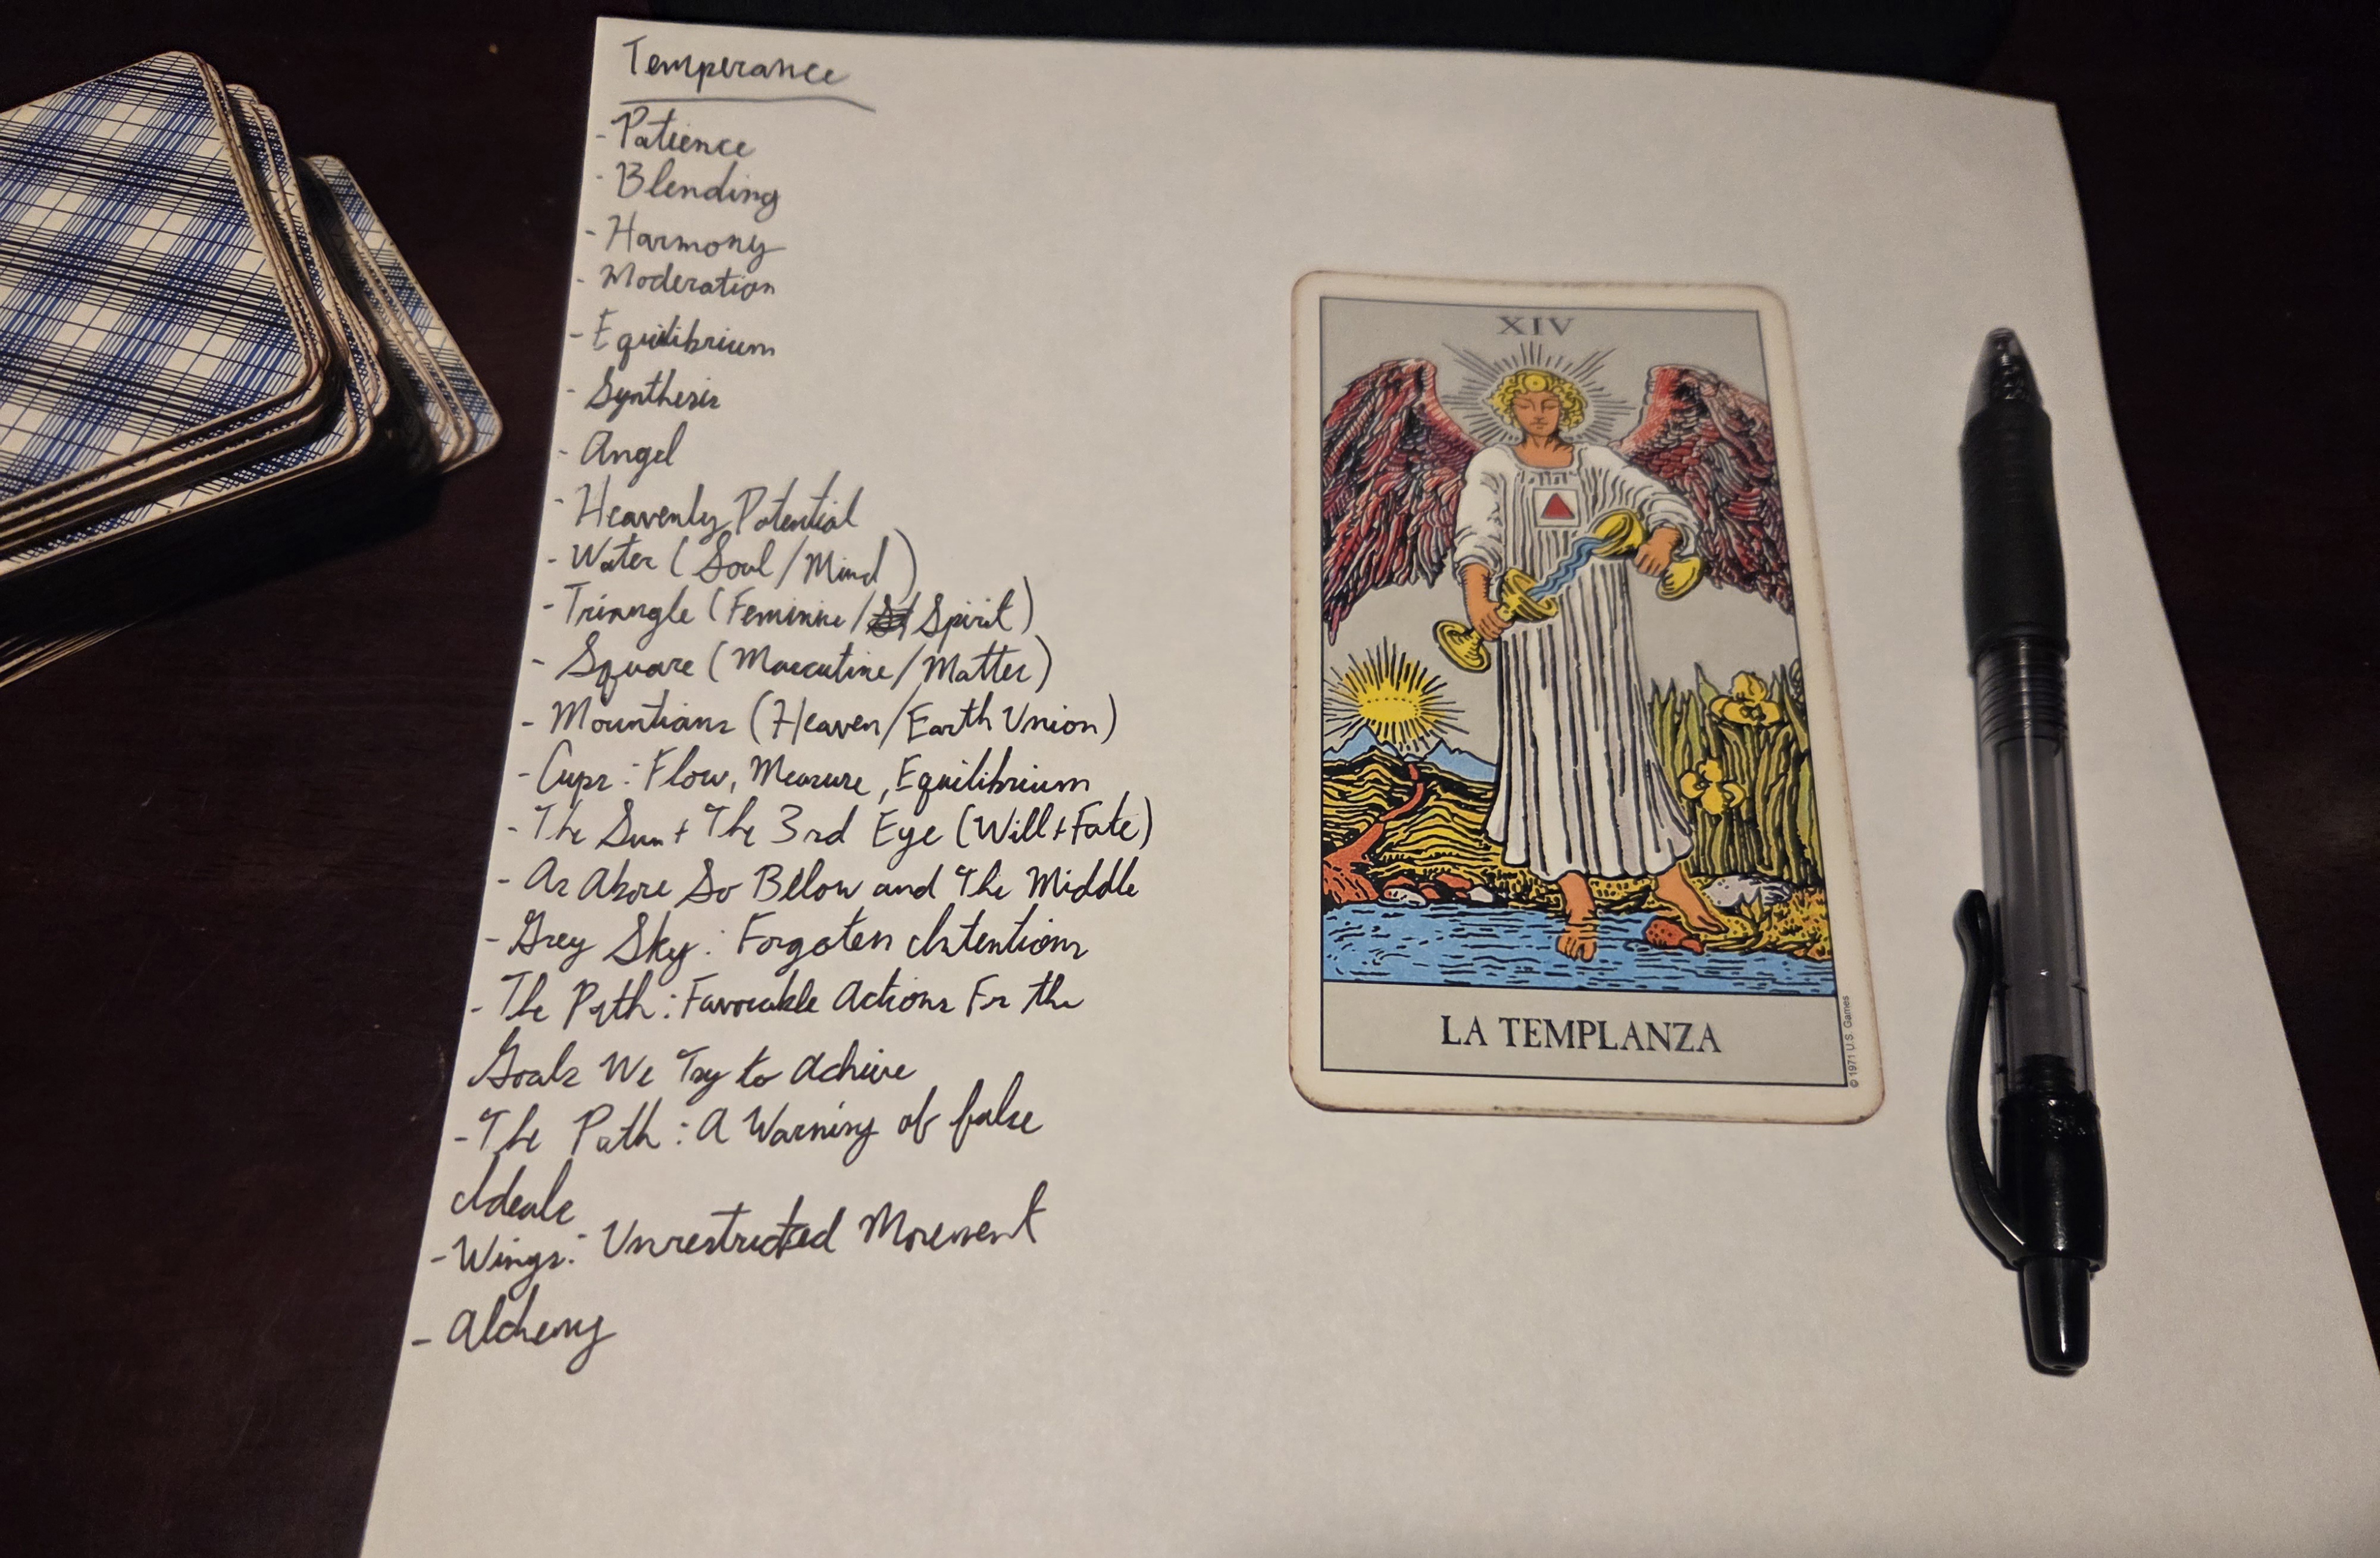 Temperance
- Patience
- Blending
- Harmony
- Moderation
- Equilibrium
- Synthesis
- Angel
- Heavenly Potential
- Water (Soul/Mind)
- Triangle (Feminine/ Spirit)
- Square (Mascutine/Matter)
- Mountians (Heaven/Earth Union)
- Cups: Flow, Measure, Equilibrium
- The Sun + The 3rd Eye (Will+Fate)
- As Above So Bellow and The Middle
- Grey Sky: Forgoten Intentions
- The Path: Favorable Actions Fr the
Goals We Try to Achive
- The Path: A Warning of false
Ideals
- Wings: Unrestricted Movement
- Alchemy
XIV
LA TEMPLANZA
© 1971 U.S. Games